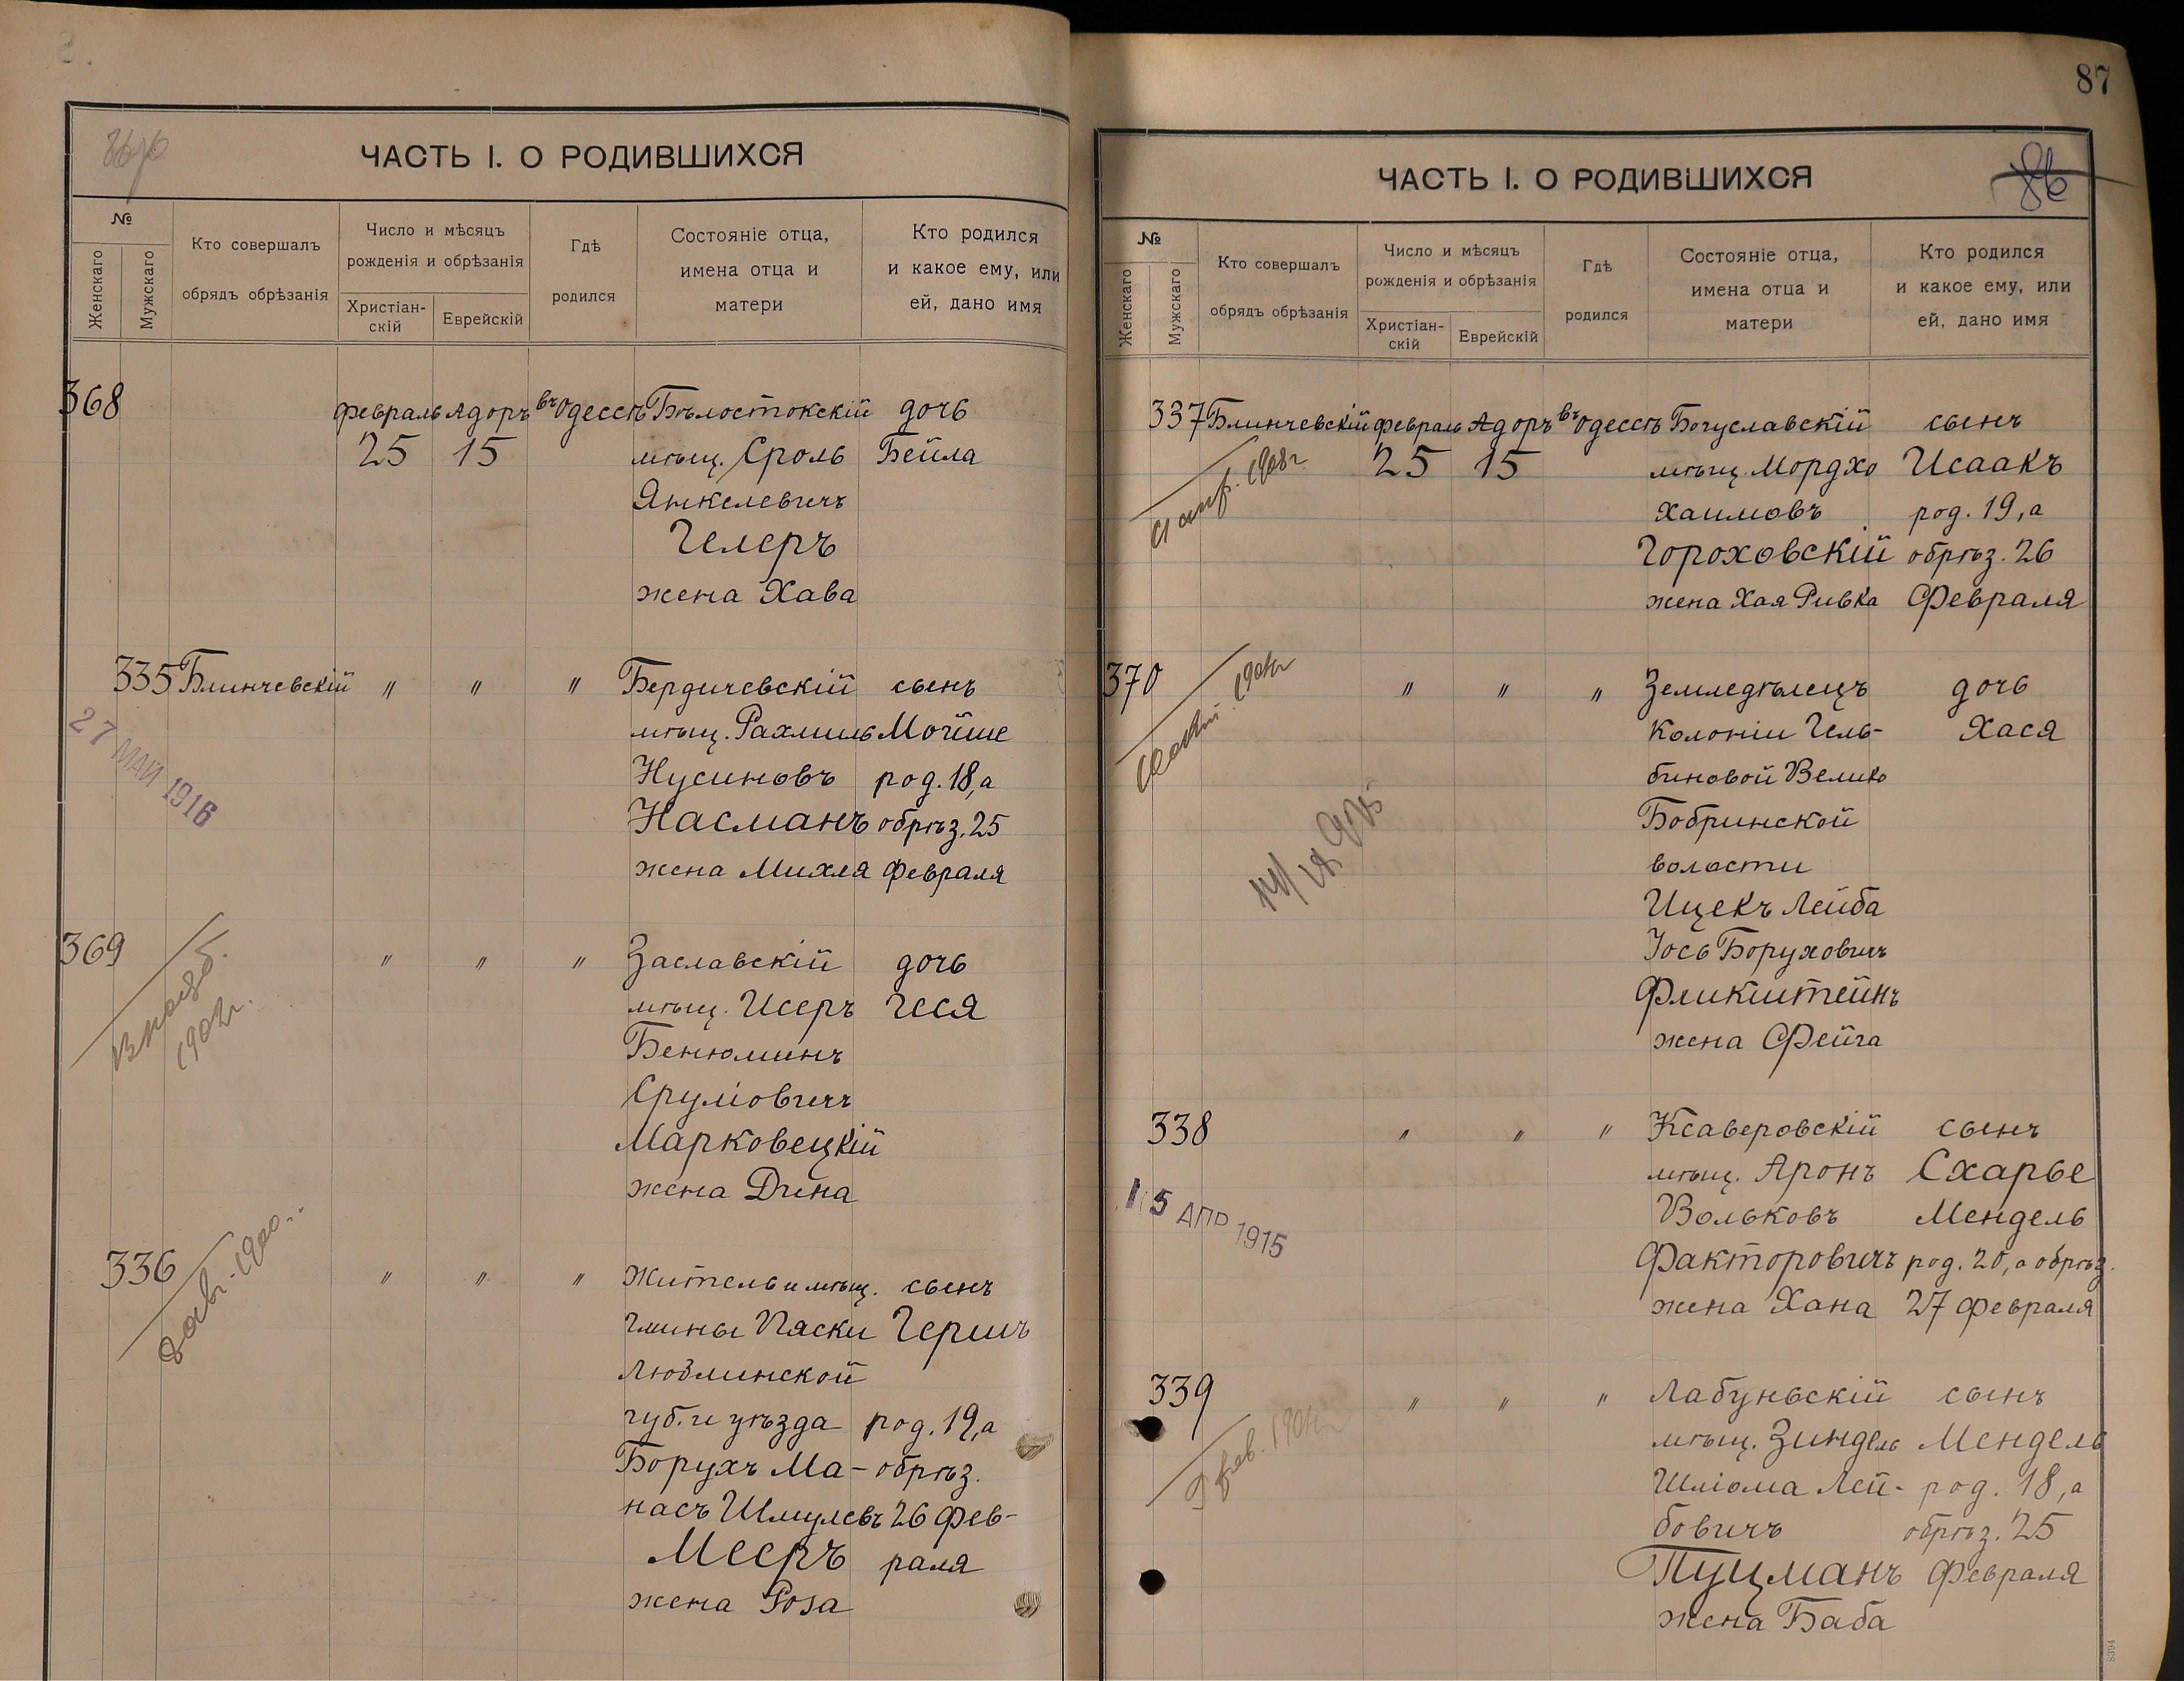 ЧАСТЬ I. О РОДИВШИХСЯ
№
Женскаго
Мужскаго
Кто совершалъ
обрядъ обрѣзанія
Число и мѣсяцъ
рожденія и обрѣзанія
Христіан-
скій
Еврейскій
Гдѣ
родился
Состояніе отца,
имена отца и
матери
Кто родился
и какое ему, или
ей, дано имя
368 февраль Адоръ въ Одессѣ Бѣлостокскій дочь
25 15 мѣщ. Сроль Бейла
Янкелевичъ
Гелеръ
жена Хава
335 Блинчевскій " " " Бердичевскій сынъ
27 МАЙ 1916
мѣщ. Рахмиль Мойше
Нусиновъ род. 18, а
Насманъ обрѣз. 25
жена Михля февраля
369 " " " Заславскій дочь
1902г.
мѣщ. Исеръ Геся
Бенюминъ
Сруліовичъ
Марковецкій
жена Дина
336 " " " Житель и мѣщ. сынъ
1900
гмины Пяски Гершъ
Люблинской
губ. и уѣзда род. 19, а
Борухъ Ма- обрѣз.
насъ Шмулевъ 26 Фев-
Мееръ раля
жена Роза
87
ЧАСТЬ I. О РОДИВШИХСЯ
86
№
Женскаго
Мужскаго
Кто совершалъ
обрядъ обрѣзанія
Число и мѣсяцъ
рожденія и обрѣзанія
Христіан-
скій
Еврейскій
Гдѣ
родился
Состояніе отца,
имена отца и
матери
Кто родился
и какое ему, или
ей, дано имя
337 Блинчевскій февраль Адоръ въ Одессѣ Богуславскій сынъ
1908г
25 15 мѣщ. Мордхо Исаакъ
Хаимовъ род. 19, а
Гороховскій обрѣз. 26
жена Хая Ривка Февраля
370 " " " Земледѣлецъ дочь
Колоніи Гель- Хася
биновой Велико
Бобринской
волости
Ицекъ Лейба
Іось Боруховичъ
Фликштейнъ
жена Фейга
338 " " " Ксаверовскій сынъ
15 АПР 1915
мѣщ. Аронъ Схарье
Вольковъ Мендель
Факторовичъ род. 20, а обрѣз.
жена Хана 27 февраля
339 " " " Лабуньскій сынъ
мѣщ. Зиндель Мендель
Шліома Лей- род. 18, а
бовичъ обрѣз. 25
Пуцманъ Февраля
жена Баба
8394